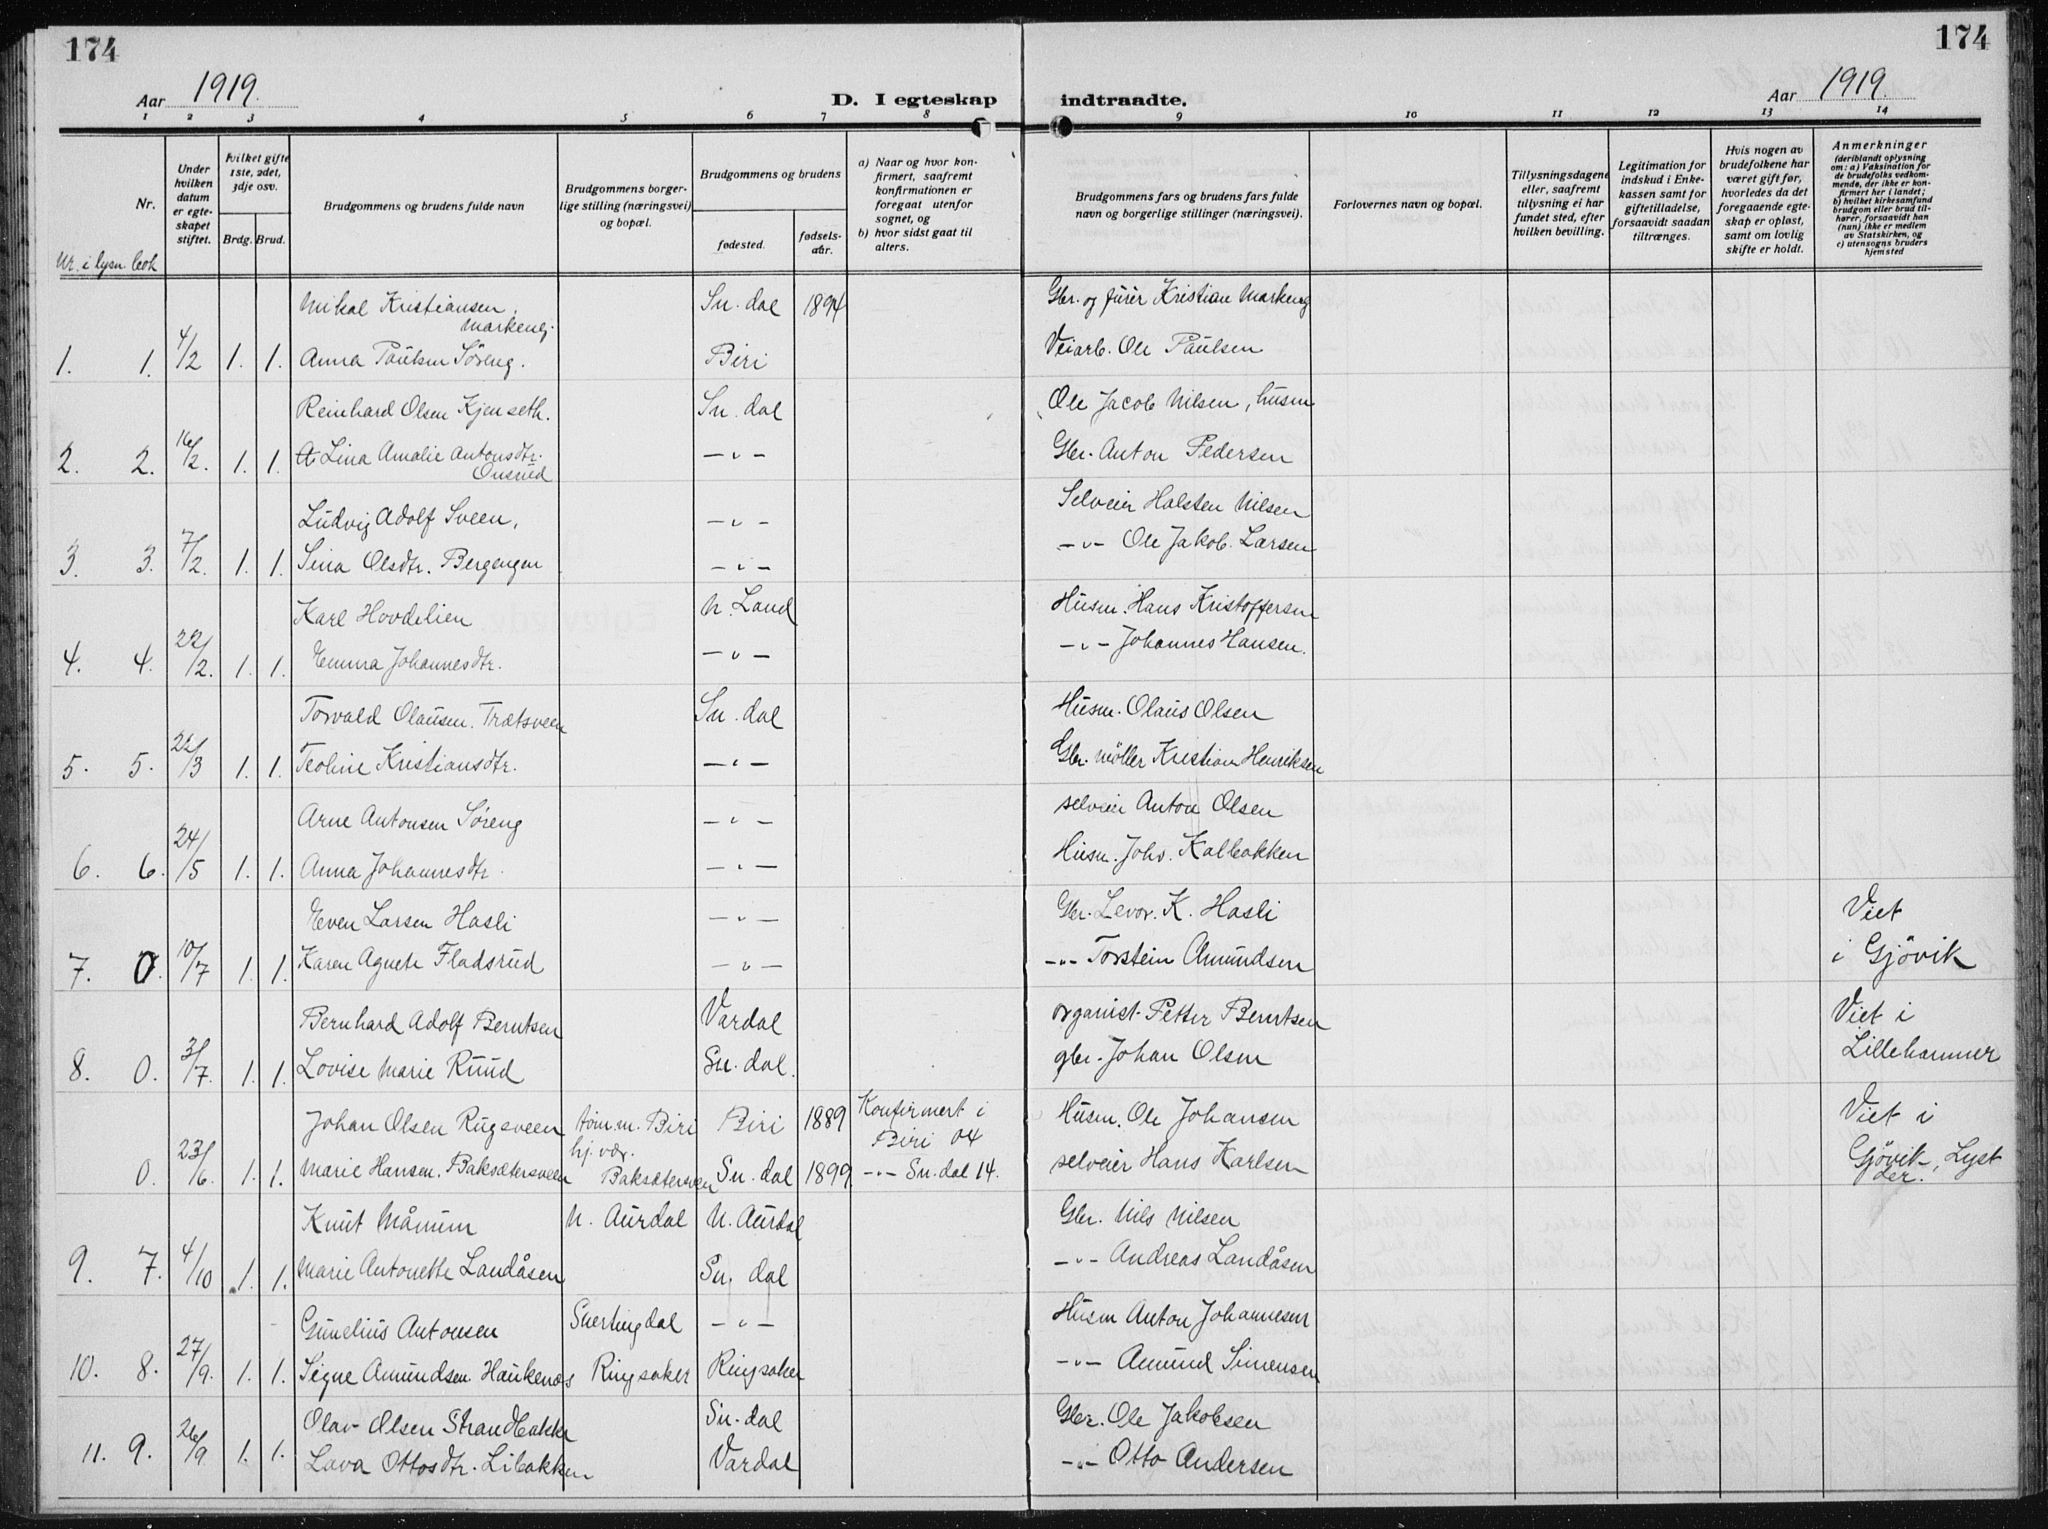 174
174
Aar 1919.
D. I egteskap indtraadte.
Aar 1919.
1 2 3 4 5 6 7 8 9 10 11 12 13 14
Nr.
Nr. i lysn. bok
Under hvilken datum er egteskapet stiftet.
Hvilket gifte 1ste, 2det, 3dje osv.
Brdg. Brud.
Brudgommens og brudens fulde navn
Brudgommens borgerlige stilling (næringsvei) og bopæl.
Brudgommens og brudens
fødested.
fødselsaar.
a) Naar og hvor konfirmert, saafremt konfirmationen er foregaat utenfor sognet, og
b) hvor sidst gaat til alters.
Brudgommens fars og brudens fars fulde navn og borgerlige stillinger (næringsvei).
Forlovernes navn og bopæl.
Tillysningsdagene eller, saafremt tillysning ei har fundet sted, efter hvilken bevilling.
Legitimation for indskud i Enkekassen samt for giftetilladelse, forsaavidt saadan tiltrænges.
Hvis nogen av brudefolkene har været gift før, hvorledes da det foregaaende egteskap er opløst, samt om lovlig skifte er holdt.
Anmerkninger
(deriblandt oplysning om: a) Vaksination for de brudefolks vedkommende, der ikke er konfirmert her i landet; b) hvilket kirkesamfund brudgom eller brud tilhører, forsaavidt han (hun) ikke er medlem av Statskirken, og c) utensogns bruders hjemsted
Mikal Kristiansen Markeng. Sn. dal 1894 Gbr. og furér Kristian Markeng
1. 1. 4/2 1. 1. Anna Paulsen Søreng. Biri Veiarb. Ole Paulsen
Reinhard Olsen Kjenseth. Sn. dal Ole Jacob Nilsen, husm
2. 2. 16/2. 1. 1. Lina Amalie Antonsdtr. Onsrud -"- Gbr. Anton Pedersen
Ludvig Adolf Sveen, -"- Selveier Halsten Nilsen
3. 3. 7/2. 1. 1. Sina Olsdtr. Bergengen -"- -"- Ole Jakob Larsen
Karl Hovdelien N. Land Husm. Hans Kristoffersen
4. 4. 22/2. 1. 1. Emma Johannesdtr. -"- -"- Johannes Hansen.
Torvald Olausen. Trætsveen Sn. dal Husm. Olaus Olsen
5. 5. 22/3 1. 1. Teoline Kristiansdtr. -"- Gbr. møller Kristian Henriksen
Arne Antonsen Søreng -"- selveier Anton Olsen
6. 6. 24/5 1. 1. Anna Johannesdtr. -"- Husm. Johs. Kalbakken
Even Larsen Hasli -"- Gbr. Levor. K. Hasli Viet
7. 0. 10/7 1. 1. Karen Agnete Fladsrud -"- -"- Torstein Amundsen i Gjövik
Bernhard Adolf Berntsen Vardal organist Petter Berntsen Viet i
8. 0. 3/7. 1. 1. Lovise Marie Ruud Sn. dal. gbr. Johan Olsen Lillehammer
Johan Olsen Rugsveen tøm.m. Biri Biri 1889 Konfirmert i Biri 04 Husm. Ole Johansen Viet i
0. 23/6. 1. 1. Marie Hansen. Baksætersveen hj. vær. Baksætersveen Sn. dal 1899 -"- Sn. dal 14. selveier Hans Karlsen Gjövik, Lyst
Knut Månum N. Aurdal N. Aurdal Gbr. Nils Nilsen
9. 7. 4/10 1. 1. Marie Antonette Landåsen Sn. dal -"- Andreas Landåsen
Gunelius Antonsen Snertingdal -"- Husm Anton Johannesen
10. 8. 27/9. 1. 1. Signe Amundsen Haukenæs Ringsaker Ringsaker -"- Amund Simensen
Olav Olsen Strandbakke Sn. dal Gbr. Ole Jakobsen
11. 9. 26/9 1. 1. Lava Ottosdtr. Libakken Vardal -"- Otto Andersen